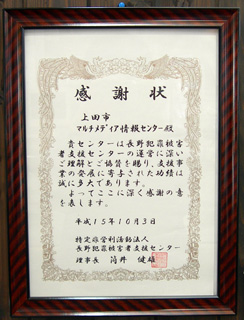 感謝状
上田市
マルチメディア情報センター殿
貴センターは長野犯罪被害
者支援センターの運営に深い
ご理解とご協賛を賜り、支援事
業の発展に寄与された功績は
誠に多大であります。
よってここに深く感謝の意
を表します。
平成15年10月3日
特定非営利活動法人
長野犯罪被害者支援センター
理事長 筒井健雄